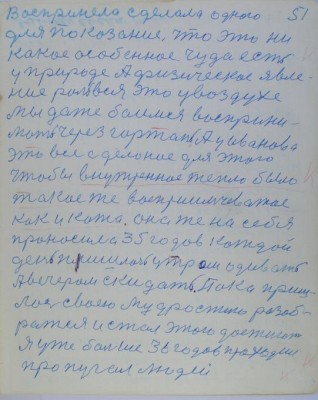 Восприняла сделала одного 51
для показание, что это ни
какое особенное чудо есть
у природе А физическое явле-
ние родовся это у воздухе
мы даже боимся восприни-
мать через гортань А у Иванова
это все сделоное для этого
чтобы внутренное тепло было
такое же восприимчеватое
как и кожа. она же на себя
проносила 35 годов каждой
день пришлось утром одивать
А вечером скидать. Пока приш-
лось своею мудростью разоб-
ратся и стал этого достигать
Я уже больше 36 годов проходил
пропугал людей